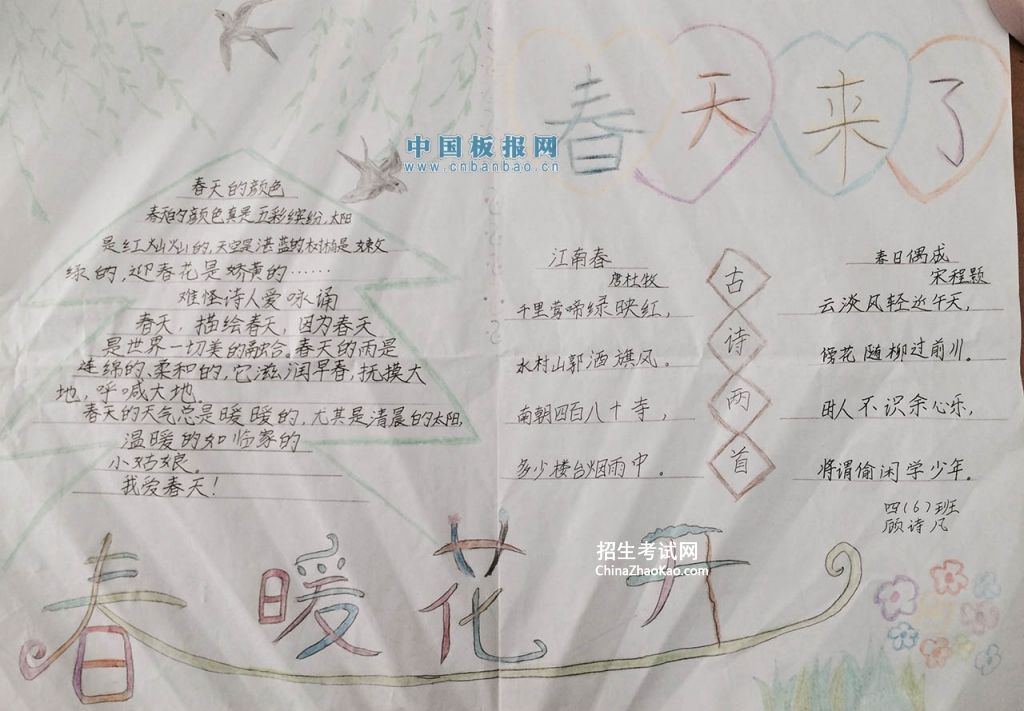 春天来了
中国板报网
www.cnbanbao.cn
春天的颜色
春天的颜色真是五彩缤纷,太阳
是红灿灿的,天空是湛蓝的,树梢是嫩
绿的,迎春花是娇黄的……
难怪诗人爱咏诵
春天,描绘春天,因为春天
是世界一切美的融合。春天的雨是
连绵的、柔和的,它滋润早春,抚摸大
地,呼喊大地。
春天的天气总是暖暖的,尤其是清晨的太阳,
温暖的如临家的
小姑娘。
我爱春天!
江南春
唐杜牧
千里莺啼绿映红,
水村山郭酒旗风。
南朝四百八十寺,
多少楼台烟雨中。
古诗两首
春日偶成
宋程颢
云淡风轻近午天,
傍花随柳过前川。
时人不识余心乐,
将谓偷闲学少年。
四(6)班
顾诗凡
招生考试网
ChinaZhaoKao.com
春暖花开